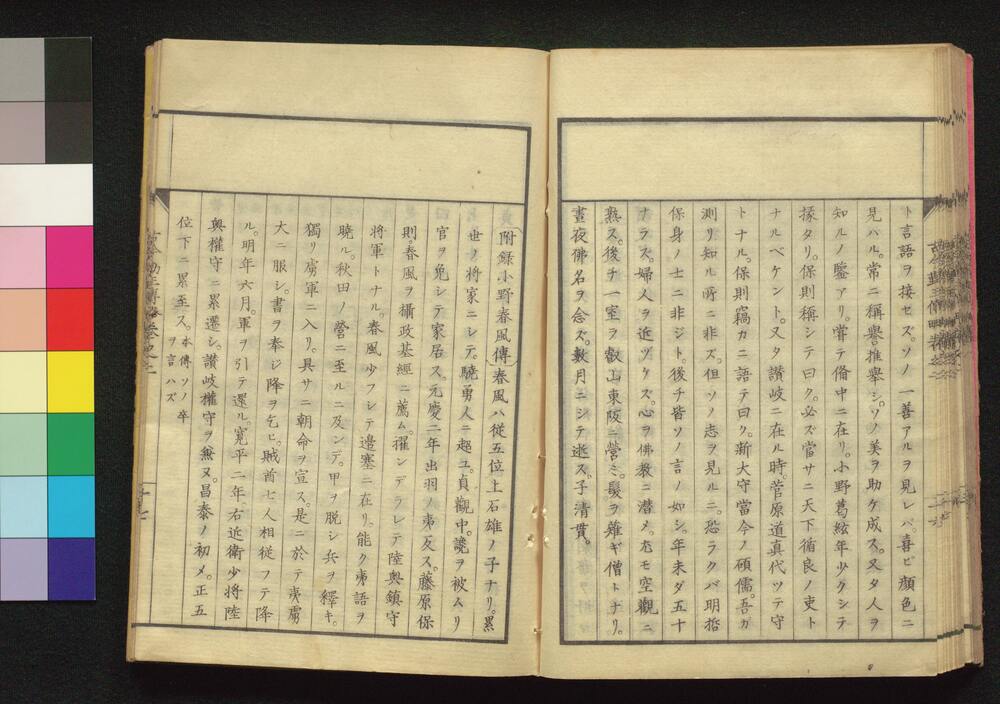 ト言語ヲ接セズ。ソノ一善アルヲ見レバ。喜ビ顔色ニ
見ハル。常ニ稱譽。推擧シ。ソノ美ヲ助ケ成ス。又タ人ヲ
知ルノ鑒アリ。嘗テ備中ニ在リ。小野葛絃年少クシテ
掾タリ。保則稱シテ曰ク。必ズ當サニ天下循良ノ吏ト
ナルベケント。又タ讃岐ニ在ル時。菅原道真代ツテ守
トナル。保則竊カニ語テ曰ク。新大守當今ノ碩儒。吾ガ
測リ知ル所ニ非ズ。但ソノ志ヲ見ルニ。恐ラクバ明哲
保身ノ士ニ非ジト。後チ皆ソノ言ノ如シ。年未ダ五十
ナラズ。婦人ヲ近ヅケズ。心ヲ佛教ニ潜メ。尤モ空觀ニ
熟ス。後チ一室ヲ叡山東阪ニ營ミ。髮ヲ薙ギ僧トナリ。
晝夜佛名ヲ念ズ。數月ニシテ逝ス。子清貫。
附録小野春風傳 春風ハ從五位上石雄ノ子ナリ。累
世ノ將家ニシテ。驍勇人ニ超ユ。貞觀中。讒ヲ被ムリ
官ヲ免シテ家居ス。元慶二年出羽ノ夷反ス。藤原保
則。春風ヲ攝政基經ニ薦ム。擢ンデラレテ陸奥鎮守
將軍トナル。春風少フシテ邉塞ニ在リ。能ク夷語ヲ
曉ル。秋田ノ營ニ至ルニ及ンデ。甲ヲ脱シ兵ヲ釋キ。
獨リ虜軍ニ入リ。具サニ朝命ヲ宣ス。是ニ於テ夷虜
大ニ服シ。書ヲ奉シ降ヲ乞ヒ。賊酋七人相從フテ降
ル。明年六月。軍ヲ引テ還ル。寛平二年右近衛少將陸
奥權守ニ累遷シ。讃岐權守ヲ兼ヌ。昌泰ノ初メ。正五
位下ニ累至ス。本傳ソノ卒
ヲ言ハズ